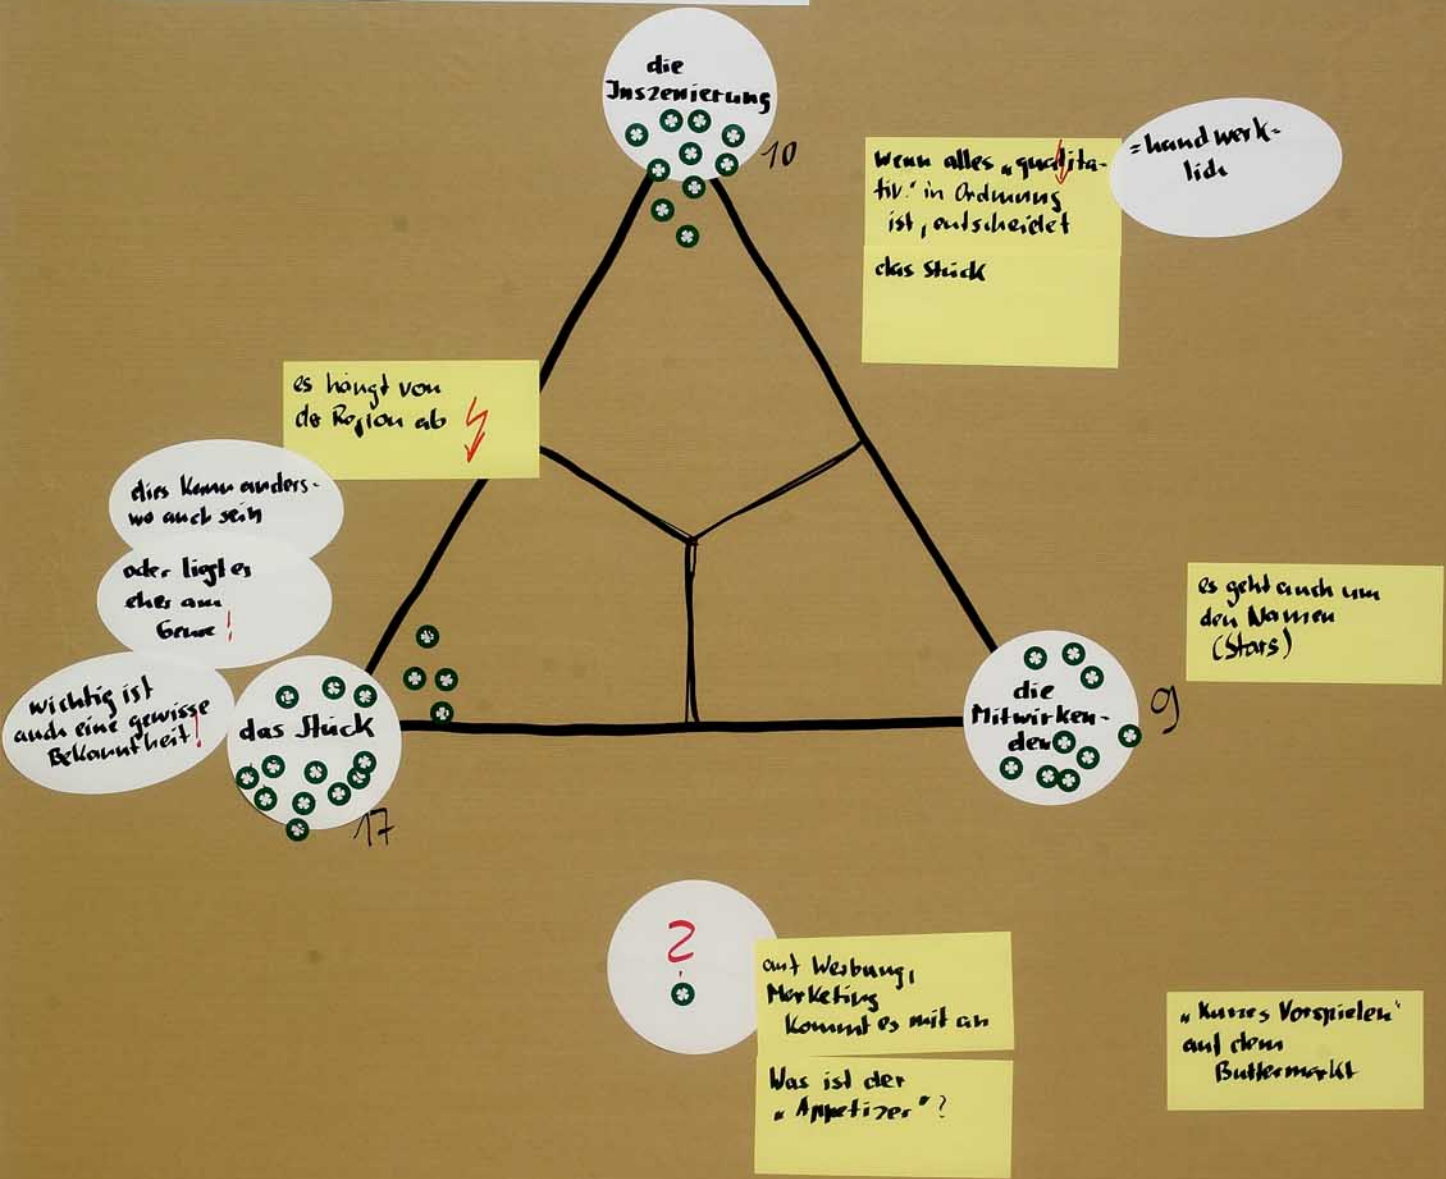 die
Inszenierung
10
wenn alles „qualita-
tiv“ in Ordnung
ist, entscheidet
das Stück
=handwerk-
lich
es hängt von
der Region ab
dies kann anders-
wo auch sein
oder liegt es
eher am
Genre!
wichtig ist
auch eine gewisse
Bekanntheit!
das Stück
17
es geht auch um
den Namen
(Stars)
die
Mitwirken-
den
9
?
auf Werbung,
Marketing
kommt es mit an
Was ist der
„Appetizer“?
„Kurzes Vorspielen“
auf dem
Buttermarkt